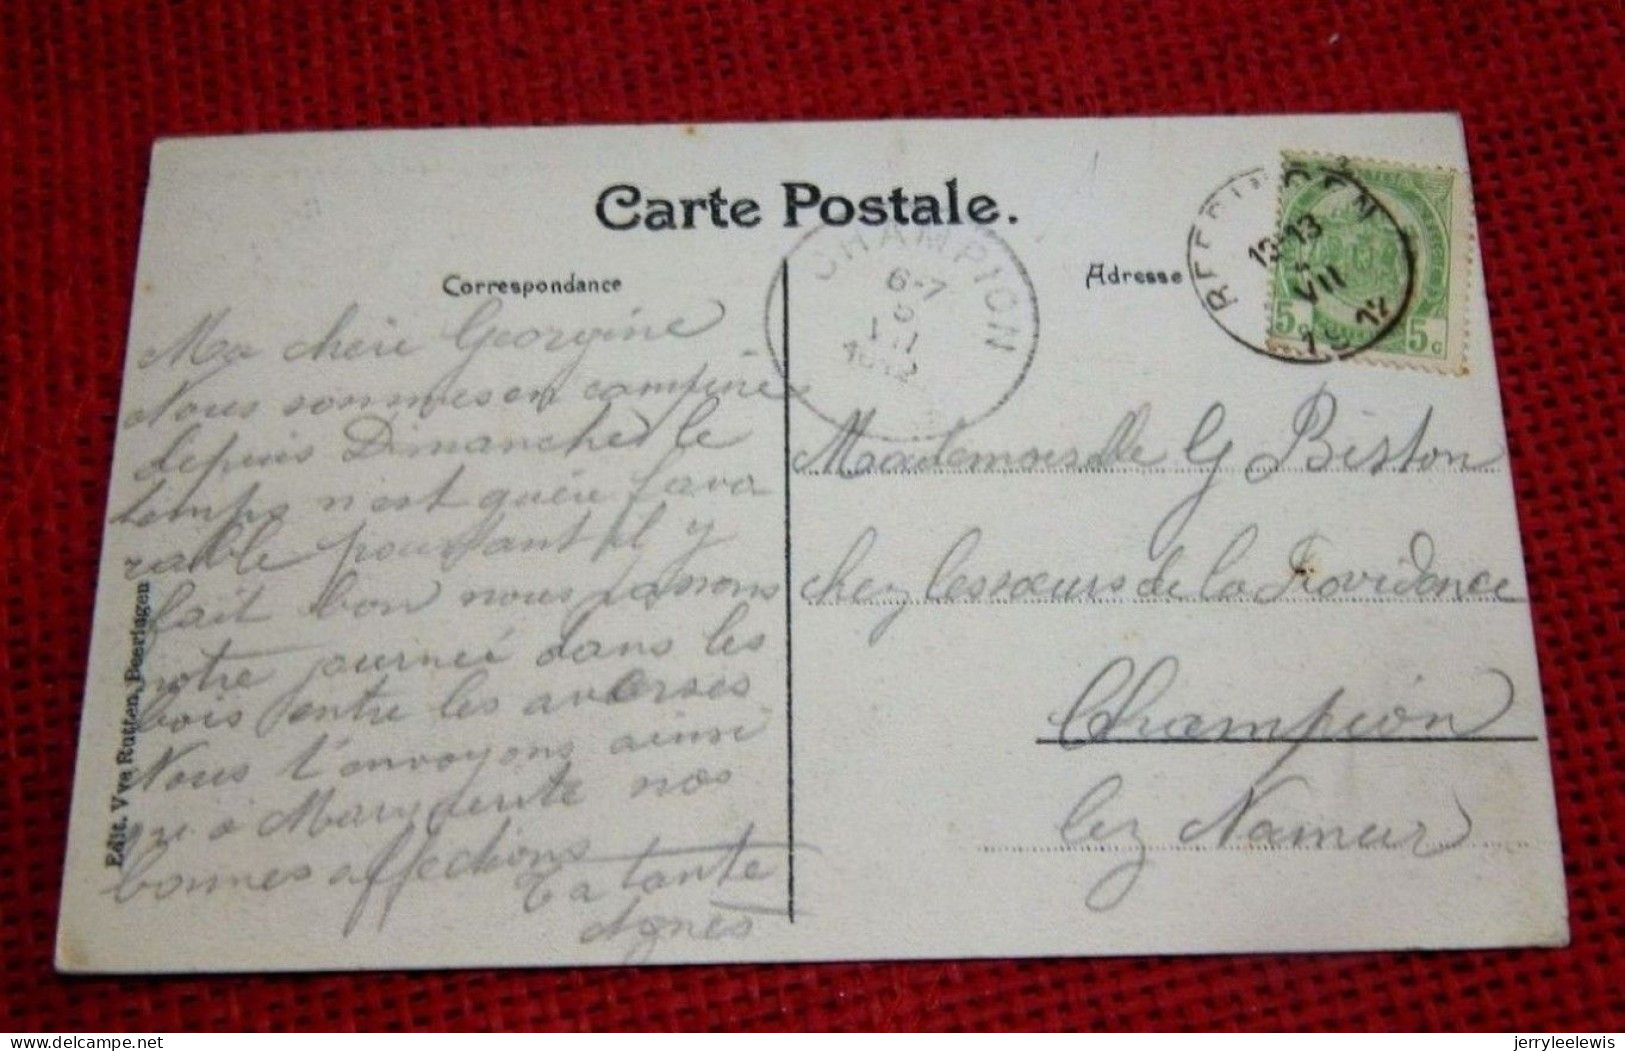 Carte Postale.
Correspondance
Adresse
CHAMPION
6-7
BEERINGEN
12-13
VII
1912
5c 5c
Ma chère Georgine
Nous sommes en campine
depuis Dimanche le
temps n'est guère favo
rable pourtant il y
fait bon nous passons
notre journée dans les
bois entre les averses
Nous t'envoyons ainsi
qu'à Marguerite nos
bonnes affections
Ta tante
Agnès
Mademoiselle G Biston
chez les sœurs de la Providence
Champion
lez Namur
Edit. Vve Rutten, Beeringen
delcampe.net
jerryleelewis